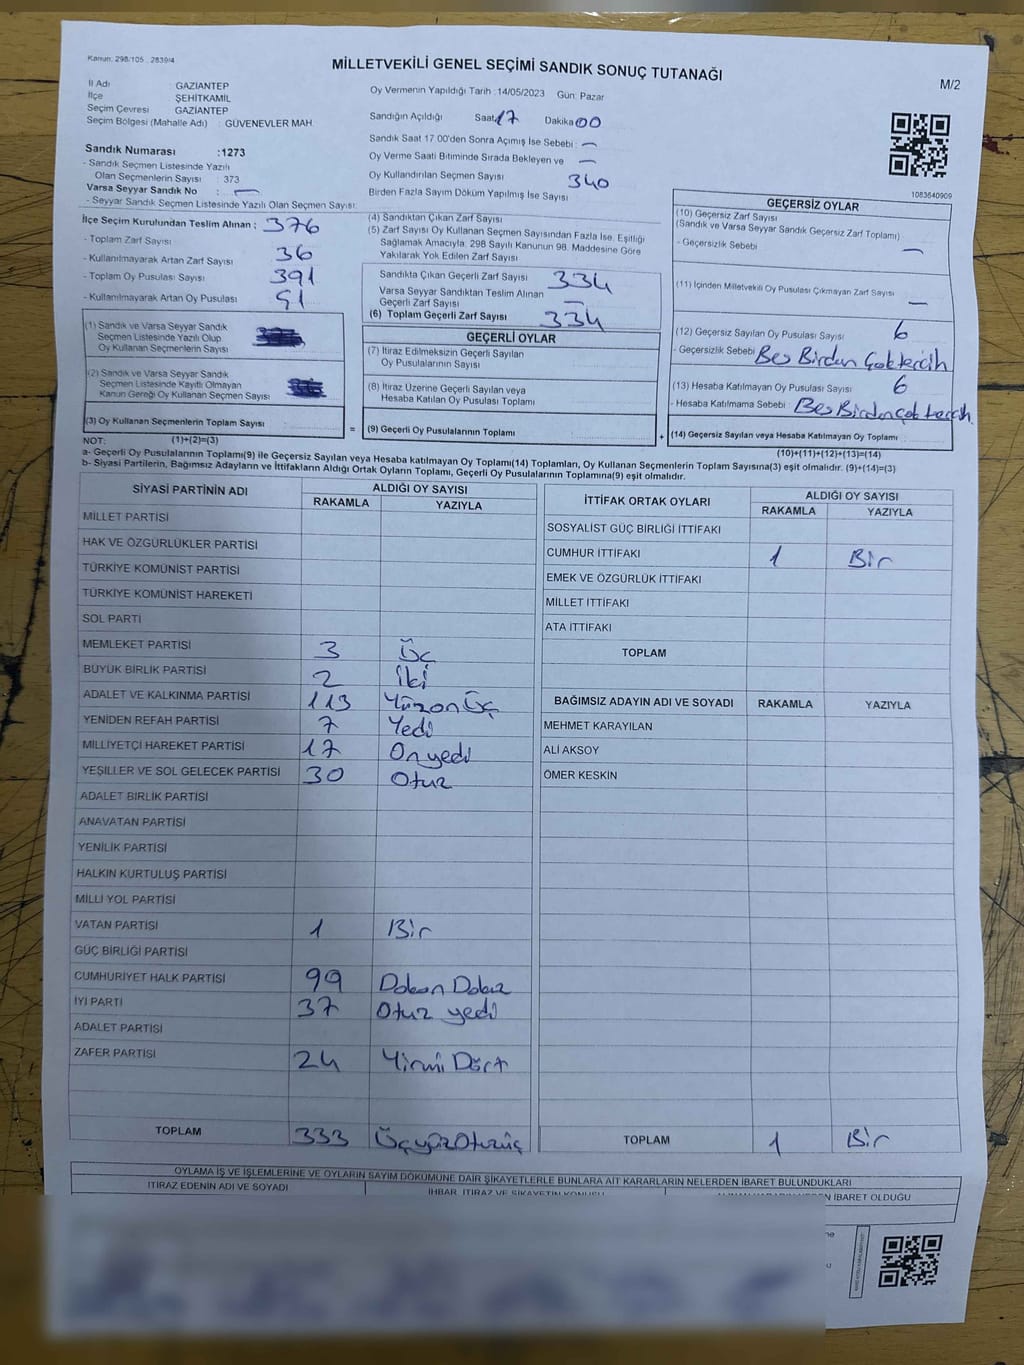 Kanun: 298/105 . 2839/4
MİLLETVEKİLİ GENEL SEÇİMİ SANDIK SONUÇ TUTANAĞI
M/2
İl Adı : GAZİANTEP
İlçe : ŞEHİTKAMİL
Seçim Çevresi : GAZİANTEP
Seçim Bölgesi (Mahalle Adı) : GÜVENEVLER MAH
Sandık Numarası :1273
- Sandık Seçmen Listesinde Yazılı
Olan Seçmenlerin Sayısı : 373
Varsa Seyyar Sandık No : —
- Seyyar Sandık Seçmen Listesinde Yazılı Olan Seçmen Sayısı:
Oy Vermenin Yapıldığı Tarih :14/05/2023 Gün: Pazar
Sandığın Açıldığı Saat 17 Dakika 00
Sandık Saat 17.00'den Sonra Açımış İse Sebebi : —
Oy Verme Saati Bitiminde Sırada Bekleyen ve —
Oy Kullandırılan Seçmen Sayısı 340
Birden Fazla Sayım Döküm Yapılmış İse Sayısı
1083640909
İlçe Seçim Kurulundan Teslim Alınan : 376
- Toplam Zarf Sayısı
- Kullanılmayarak Artan Zarf Sayısı 36
- Toplam Oy Pusulası Sayısı 391
- Kullanılmayarak Artan Oy Pusulası 91
(1) Sandık ve Varsa Seyyar Sandık
Seçmen Listesinde Yazılı Olup
Oy Kullanan Seçmenlerin Sayısı
(2) Sandık ve Varsa Seyyar Sandık
Seçmen Listesinde Kayıtlı Olmayan
Kanun Gereği Oy Kullanan Seçmen Sayısı
(3) Oy Kullanan Seçmenlerin Toplam Sayısı
=
(4) Sandıktan Çıkan Zarf Sayısı
(5) Zarf Sayısı Oy Kullanan Seçmen Sayısından Fazla İse, Eşitliği
Sağlamak Amacıyla, 298 Sayılı Kanunun 98. Maddesine Göre
Yakılarak Yok Edilen Zarf Sayısı
Sandıkta Çıkan Geçerli Zarf Sayısı 334
Varsa Seyyar Sandıktan Teslim Alınan
Geçerli Zarf Sayısı —
(6) Toplam Geçerli Zarf Sayısı 334
GEÇERLİ OYLAR
(7) İtiraz Edilmeksizin Geçerli Sayılan
Oy Pusulalarının Sayısı
(8) İtiraz Üzerine Geçerli Sayılan veya
Hesaba Katılan Oy Pusulası Toplamı
(9) Geçerli Oy Pusulalarının Toplamı
+
GEÇERSİZ OYLAR
(10) Geçersiz Zarf Sayısı
(Sandık ve Varsa Seyyar Sandık Geçersiz Zarf Toplamı)
- Geçersizlik Sebebi —
(11) İçinden Milletvekili Oy Pusulası Çıkmayan Zarf Sayısı
—
(12) Geçersiz Sayılan Oy Pusulası Sayısı 6
- Geçersizlik Sebebi Beş Birden Çok tercih
(13) Hesaba Katılmayan Oy Pusulası Sayısı 6
- Hesaba Katılmama Sebebi : Beş Birden çok tercih
(14) Geçersiz Sayılan veya Hesaba Katılmayan Oy Toplamı
NOT: (1)+(2)=(3)
(10)+(11)+(12)+(13)=(14)
a- Geçerli Oy Pusulalarının Toplamı(9) ile Geçersiz Sayılan veya Hesaba katılmayan Oy Toplamı(14) Toplamları, Oy Kullanan Seçmenlerin Toplam Sayısına(3) eşit olmalıdır. (9)+(14)=(3)
b- Siyasi Partilerin, Bağımsız Adayların ve İttifakların Aldığı Ortak Oyların Toplamı, Geçerli Oy Pusulalarının Toplamına(9) eşit olmalıdır.
SİYASİ PARTİNİN ADI ALDIĞI OY SAYISI
RAKAMLA YAZIYLA
MİLLET PARTİSİ
HAK VE ÖZGÜRLÜKLER PARTİSİ
TÜRKİYE KOMÜNİST PARTİSİ
TÜRKİYE KOMÜNİST HAREKETİ
SOL PARTİ
MEMLEKET PARTİSİ 3 Üç
BÜYÜK BİRLİK PARTİSİ 2 İki
ADALET VE KALKINMA PARTİSİ 113 Yüzon Üç
YENİDEN REFAH PARTİSİ 7 Yedi
MİLLİYETÇİ HAREKET PARTİSİ 17 Onyedi
YEŞİLLER VE SOL GELECEK PARTİSİ 30 Otuz
ADALET BİRLİK PARTİSİ
ANAVATAN PARTİSİ
YENİLİK PARTİSİ
HALKIN KURTULUŞ PARTİSİ
MİLLİ YOL PARTİSİ
VATAN PARTİSİ 1 Bir
GÜÇ BİRLİĞİ PARTİSİ
CUMHURİYET HALK PARTİSİ 99 Doksan Dokuz
İYİ PARTİ 37 Otuz yedi
ADALET PARTİSİ
ZAFER PARTİSİ 24 Yirmi Dört
TOPLAM 333 Üçyüzotuzüç
İTTİFAK ORTAK OYLARI ALDIĞI OY SAYISI
RAKAMLA YAZIYLA
SOSYALİST GÜÇ BİRLİĞİ İTTİFAKI
CUMHUR İTTİFAKI 1 Bir
EMEK VE ÖZGÜRLÜK İTTİFAKI
MİLLET İTTİFAKI
ATA İTTİFAKI
TOPLAM
BAĞIMSIZ ADAYIN ADI VE SOYADI RAKAMLA YAZIYLA
MEHMET KARAYILAN
ALİ AKSOY
ÖMER KESKİN
TOPLAM 1 Bir
OYLAMA İŞ VE İŞLEMLERİNE VE OYLARIN SAYIM DÖKÜMÜNE DAİR ŞİKAYETLERLE BUNLARA AİT KARARLARIN NELERDEN İBARET BULUNDUKLARI
İTİRAZ EDENİN ADI VE SOYADI
İHBAR, İTİRAZ VE ŞİKAYETİN KONUSU
İBARET OLDUĞU